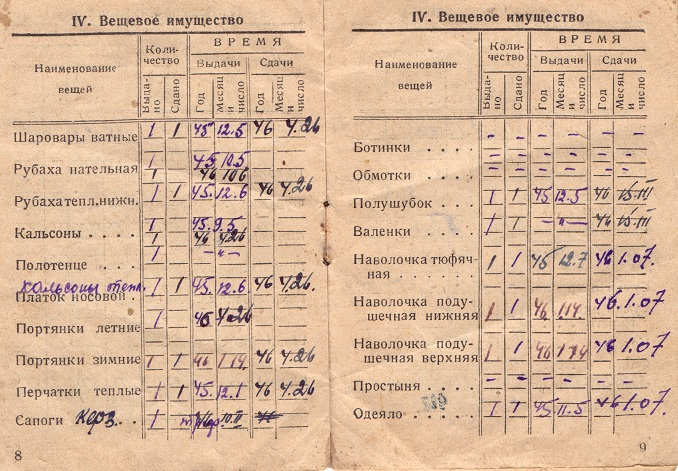 IV. Вещевое имущество
Наименование вещей
Количество
ВРЕМЯ
Выдачи
Сдачи
Выдано
Сдано
Год
Месяц и число
Год
Месяц и число
Шаровары ватные 1 1 45 12.5 46 4.26
Рубаха нательная 1 45 10.5
1 46 10 6
Рубаха тепл. нижн. 1 1 45. 12.6 46 4.26
Кальсоны . . . . 1 45. 9.5
1 46 4.26
Полотенце . . . 1 — " —
Кальсоны тепл. 1 1 45. 12.6 46 4.26.
Платок носовой .
Портянки летние 1 46 4.26
Портянки зимние 1 1 46 1.14 46 4.26
Перчатки теплые 1 1 45. 12.1 46 4.26
Сапоги керз. . . 1 46 10.II 46
8
IV. Вещевое имущество
Наименование вещей
Количество
ВРЕМЯ
Выдачи
Сдачи
Выдано
Сдано
Год
Месяц и число
Год
Месяц и число
Ботинки . . . . - - - - - -
Обмотки . . . . - - - - - -
Полушубок . . . 1 1 45 12.5 46 15.III
Валенки . . . . 1 1 — " — 46 15.III
Наволочка тюфяч-
ная . . . . . . 1 1 45 12.7 46 1.07.
Наволочка поду-
шечная нижняя 1 1 46 1.14 46. 1.07
Наволочка поду-
шечная верхняя 1 1 46 1.14 46 1.07
Простыня . . . - - - - - -
Одеяло . . . . 1 1 45 11.5 46 1.07.
9